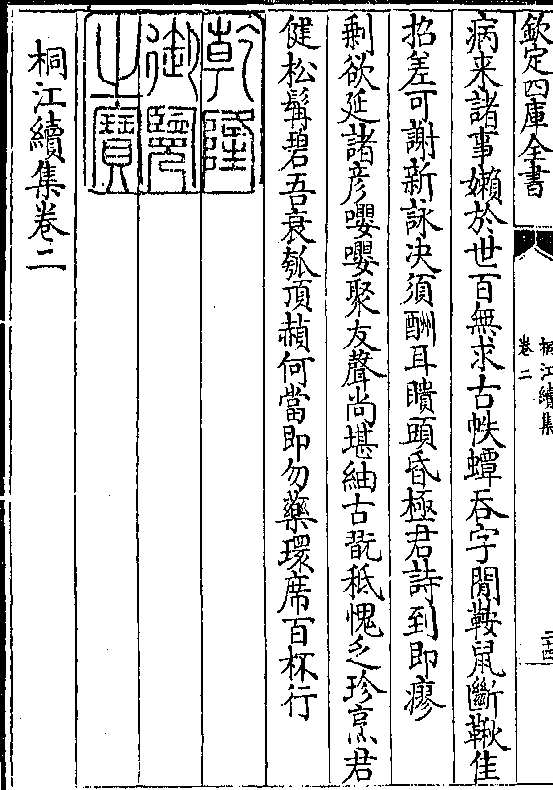 欽定四庫全書
桐江續集
卷二
二十四
病来諸事嬾於世百無求古帙蟫吞字閒鞍鼠齧鞦佳
招差可謝新詠决須酬耳聵頭昏極君詩到即瘳
剩欲延諸彦嚶嚶聚友聲尚堪紬古翫秪愧乏珍烹君
健松髯碧吾衰瓠頂赬何當即勿藥環席百杯行
乾隆
御覽
之寶
桐江續集卷二